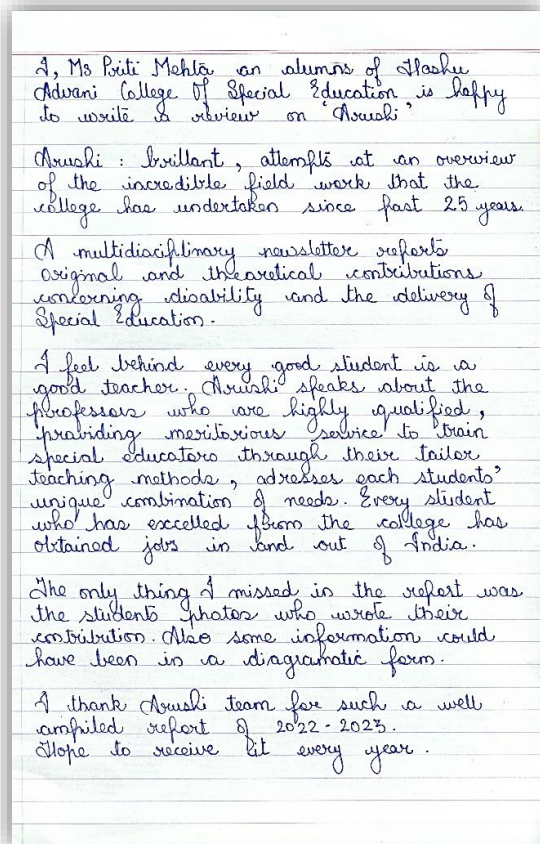 I, Ms Priti Mehta an alumns of Hashu
Advani College Of Special Education is happy
to write a review on 'Arushi'
Arushi : brillant, attempts at an overview
of the incredible field work that the
college has undertaken since past 25 years.
A multidisciplinary newsletter reports
original and theoretical contributions
concerning disability and the delivery of
Special Education.
I feel behind every good student is a
good teacher. Arushi speaks about the
professors who are highly qualified,
providing meritorious service to train
special educators through their tailor
teaching methods, adresses each students'
unique combination of needs. Every student
who has excelled from the college has
obtained jobs in and out of India.
The only thing I missed in the report was
the students photos who wrote their
contribution. Also some information could
have been in a diagramatic form.
I thank Arushi team for such a well
compiled report of 2022-2023.
Hope to receive it every year.